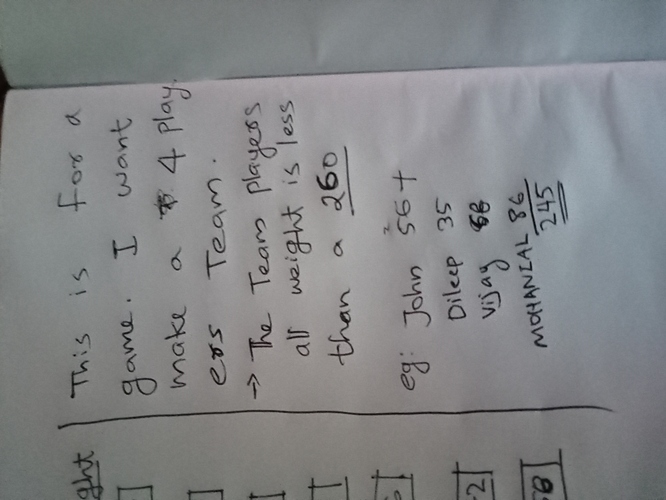 This is for a
game. I want
make a 4 play
ers Team.
→ The Team players
all weight is less
than a 260
eg: John 56+
Dileep 35
Vijay 68
MOHANLAL 86
245
ght